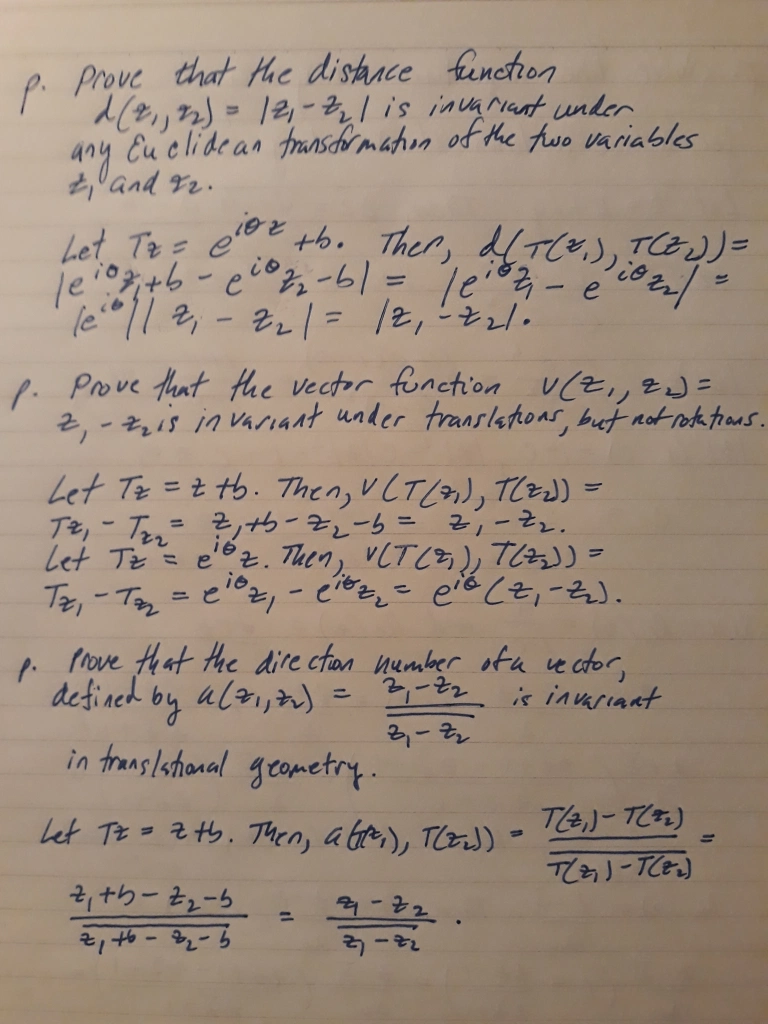 p. Prove that the distance function
d(z₁, z₂) = |z₁ - z₂| is invariant under
any Euclidean transformation of the two variables
z₁ and z₂.
Let Tz = e^{iθz} + b. Then, d(T(z₁), T(z₂)) =
|e^{iθ}z₁ + b - e^{iθ}z₂ - b| = |e^{iθ}z₁ - e^{iθ}z₂| =
|e^{iθ}||z₁ - z₂| = |z₁ - z₂|.
p. Prove that the vector function v(z₁, z₂) =
z₁ - z₂ is invariant under translations, but not rotations.
Let Tz = z + b. Then, v(T(z₁), T(z₂)) =
Tz₁ - Tz₂ = z₁ + b - z₂ - b = z₁ - z₂.
Let Tz = e^{iθ}z. Then, v(T(z₁), T(z₂)) =
Tz₁ - Tz₂ = e^{iθ}z₁ - e^{iθ}z₂ = e^{iθ}(z₁ - z₂).
p. Prove that the direction number of a vector,
defined by a(z₁, z₂) = \frac{z₁ - z₂}{\overline{z₁ - z₂}} is invariant
in translational geometry.
Let Tz = z + b. Then, a(T(z₁), T(z₂)) = \frac{T(z₁) - T(z₂)}{\overline{T(z₁) - T(z₂)}} =
\frac{z₁ + b - z₂ - b}{\overline{z₁ + b - z₂ - b}} = \frac{z₁ - z₂}{\overline{z₁ - z₂}}.